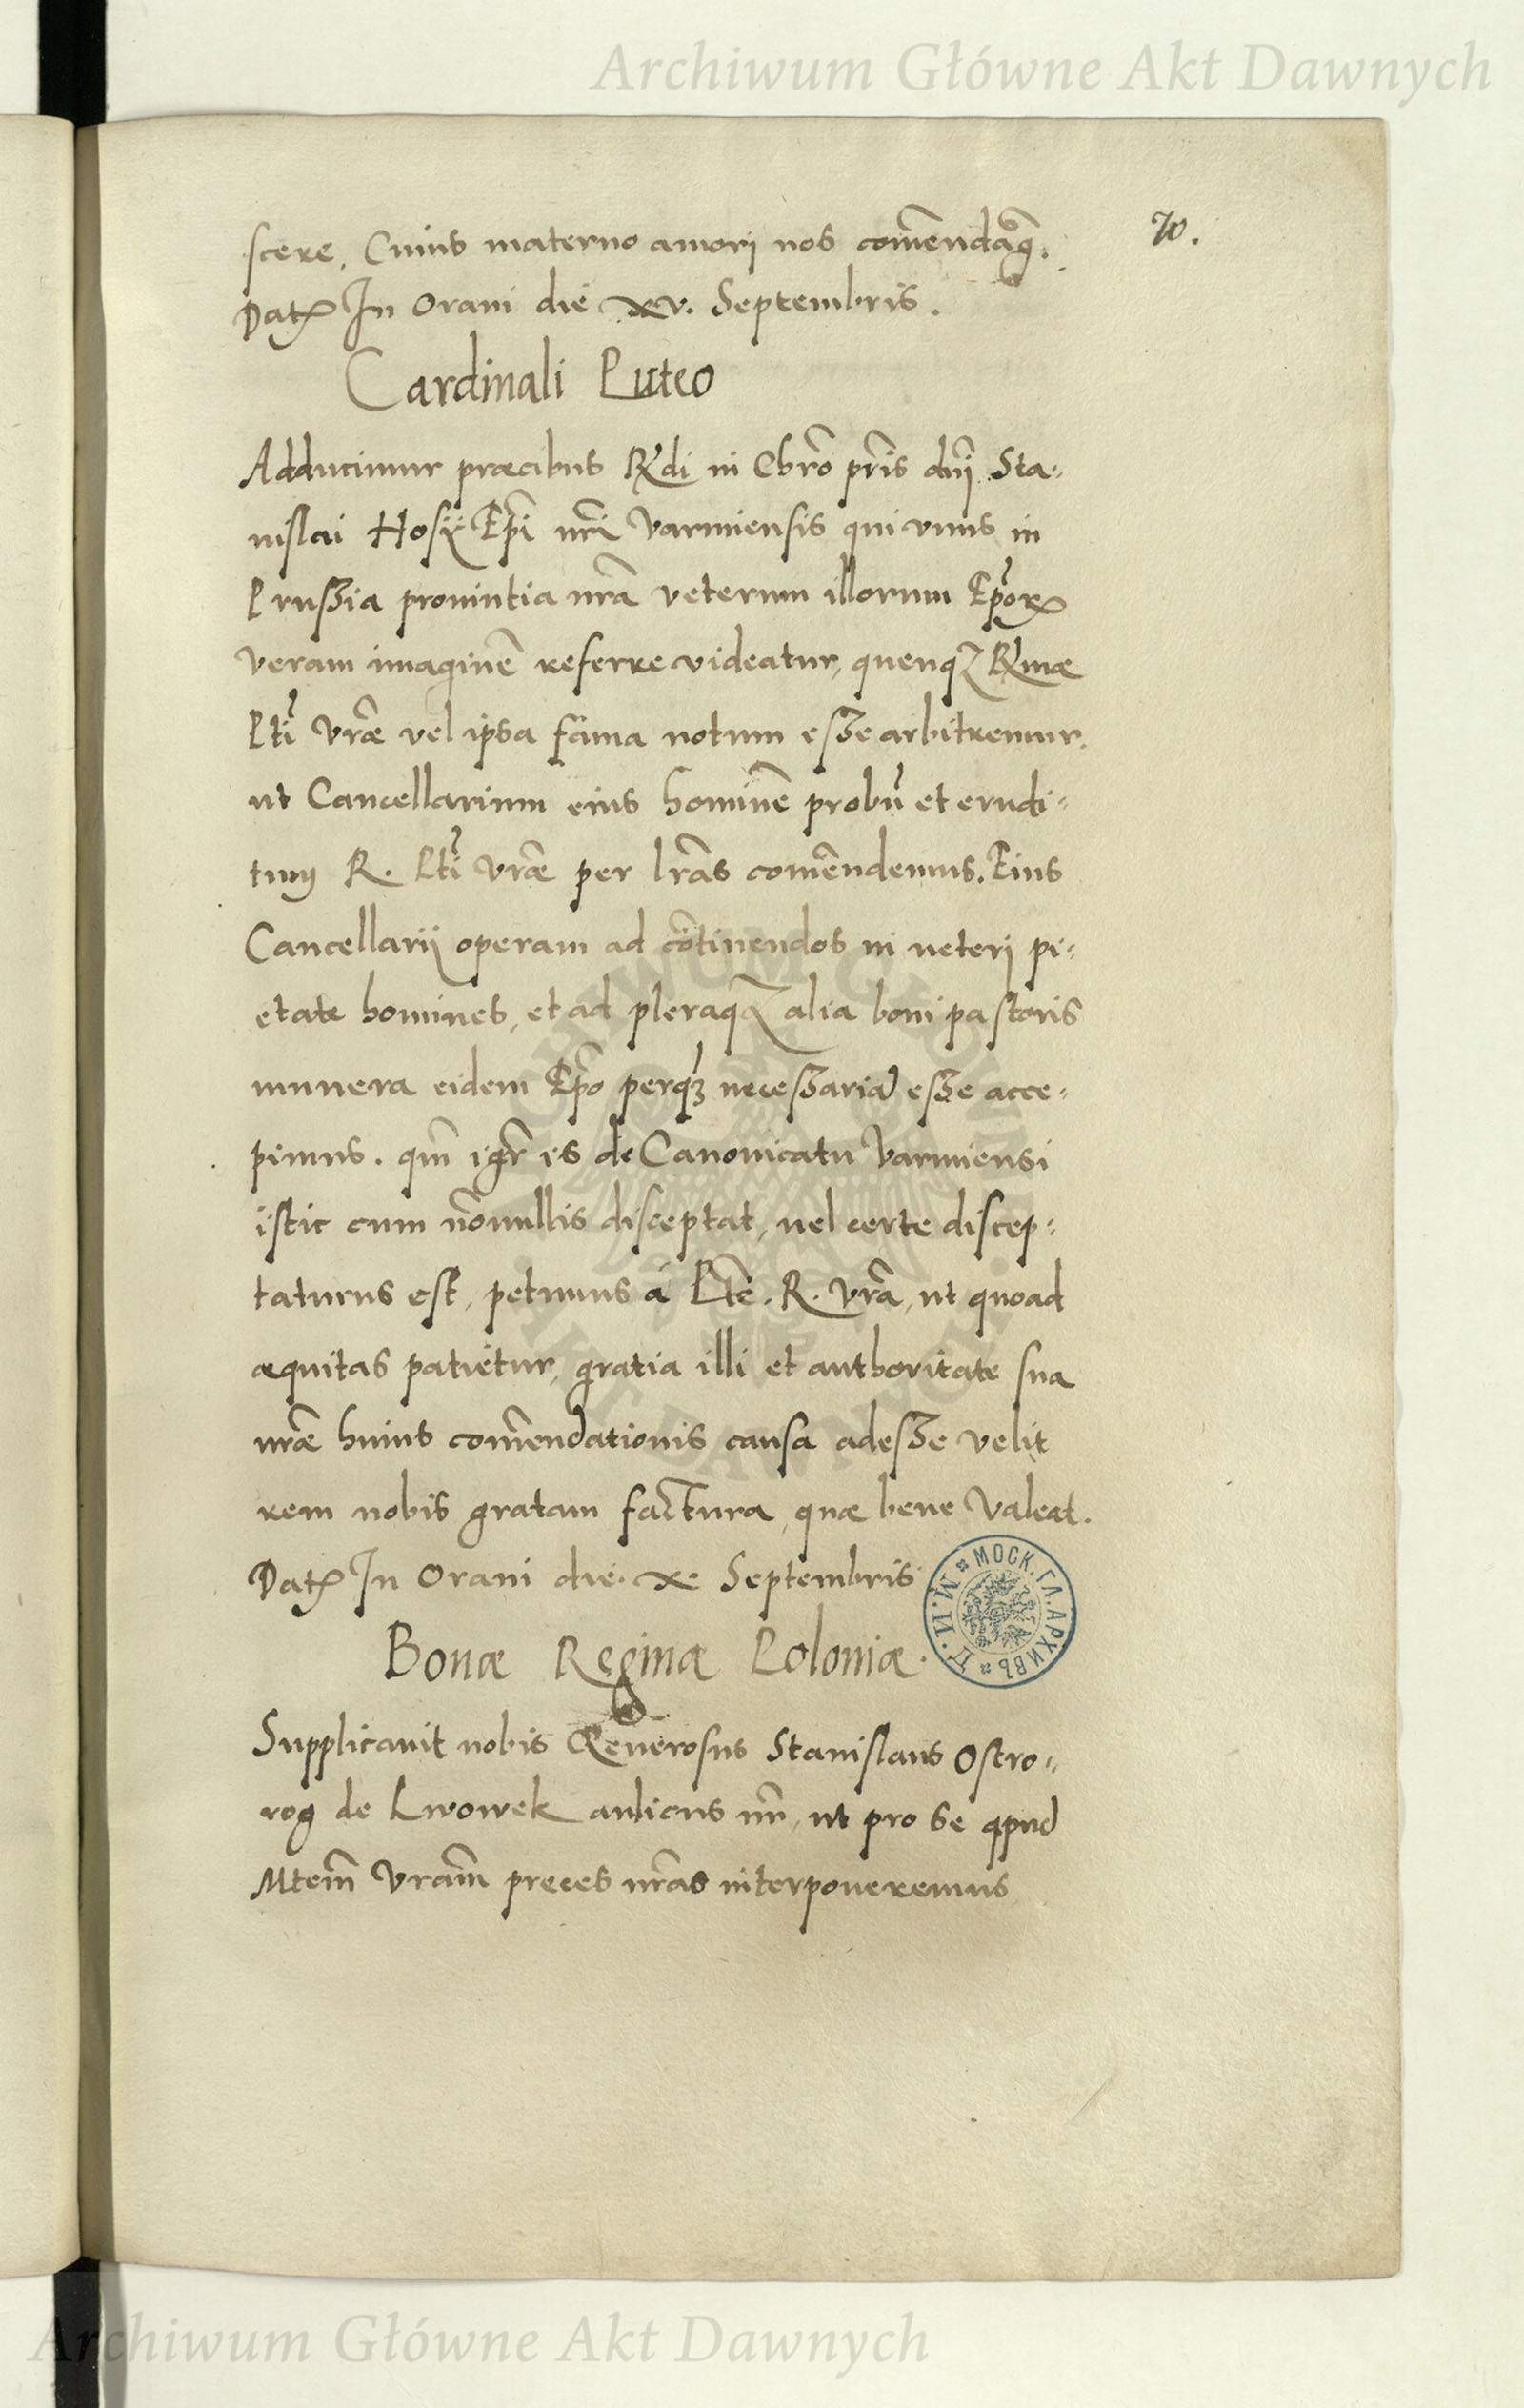 Archiwum Główne Akt Dawnych
70.
scere. Cuius materno amori nos com̃endãq.
Datꝝ In Orani die xv. Septembris.
Cardinali Puteo
Adducimur præcibus R̃di in Chr̃o pr̃is dñi Sta-
nislai Hosij Ep̃i nr̃i Varmiensis qui unus in
Prussia provintia nr̃a veterum illorum Ep̃orꝝ
veram imaginẽ referre videatur, quenqꝫ R̃mæ
Pti̾ vr̃æ vel ipsa fama notum esse arbitremur,
ut Cancellarium eius hominẽ probũ et erudi-
tum R. Pti̾ vr̃æ per lr̃as com̃endemus. Eius
Cancellarij operam ad cõtinendos in veteri pi-
etate homines, et ad pleraqꝫ alia boni pastoris
munera eidem Ep̃o perqꝫ necessariã esse acce-
pimus. qm̃ igr̃ is de Canonicatu Varmiensi
istic cum nõnullis disceptat, vel certe discep-
taturus est, petimus á Pte̾. R. vr̃a, ut quoad
æquitas patietur, gratia illi et authoritate sua
nr̃æ huius com̃endationis causa adesse velit
rem nobis gratam factura, quæ bene Valeat.
Datꝝ In Orani die. x. Septembris
Bonæ Reginæ Poloniæ.
Supplicavit nobis Generosus Stanislaus Ostro-
rog de Lwowek aulicus nr̃, ut pro se apud
Mtem̃ Vram̃ preces nr̃as interponeremus
МОСК. ГЛ. АРХИВЪ М. И. Д.
Archiwum Główne Akt Dawnych